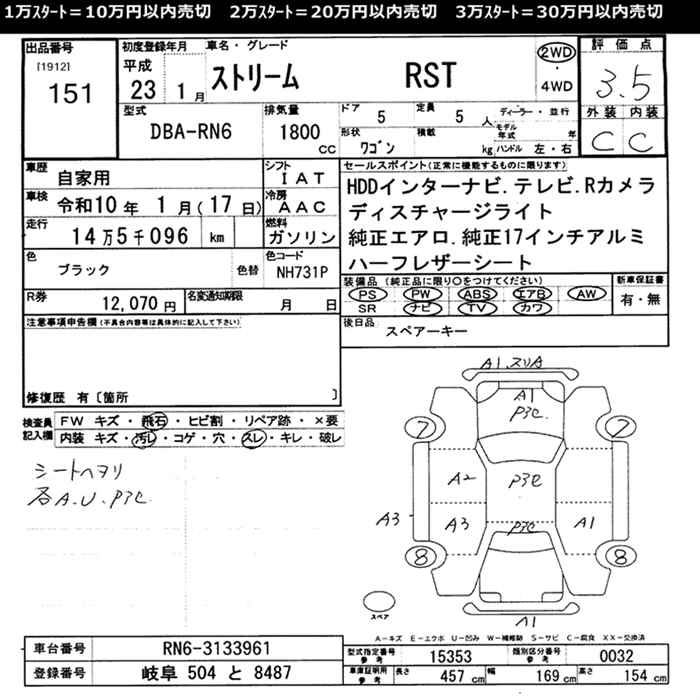 1万ｽﾀｰﾄ＝10万円以内売切　2万ｽﾀｰﾄ＝20万円以内売切　3万ｽﾀｰﾄ＝30万円以内売切
出品番号 [1912] 151
初度登録年月 平成 23 1月
車名・グレード ストリーム RST
2WD ・ 4WD
評価点 3.5
外装 内装
C C
型式 DBA-RN6
排気量 1800 cc
ドア 5
定員 5 人
ディーラー・並行
モデル年式 年
形状 ワゴン
積載 kg
ハンドル 左・右
車歴 自家用
シフト IAT
車検 令和10年 1月(17日)
冷房 AAC
走行 14万5千096 km
燃料 ガソリン
色 ブラック 色替
色コード NH731P
R券 12,070円
名変通知期限 月 日
セールスポイント(正常に機能するものに限ります)
HDDインターナビ.テレビ.Rカメラ
ディスチャージライト
純正エアロ.純正17インチアルミ
ハーフレザーシート
装備品 (純正品に限り〇をつけてください)
PS PW ABS エアB AW
SR ナビ TV カワ
新車保証書 有・無
後日品 スペアーキー
注意事項申告欄(不具合内容等は具体的に記入して下さい)
修復歴 有〔箇所 〕
検査員記入欄
FW キズ ・ 飛石 ・ ヒビ割 ・ リペア跡 ・ ×要
内装 キズ ・ 汚レ ・ コゲ ・ 穴 ・ スレ ・ キレ ・ 破レ
シートヘタリ
各A.U.P3C
A1.スリA
A1
P3C
7 7
A2 P3C
A3 A3 P3C A1
8 8
スペア
A1
A-キズ E-エクボ U-凹ミ W-補修跡 S-サビ C-腐食 XX-交換済
車台番号 RN6-3133961
登録番号 岐阜 504 と 8487
型式指定番号 参考 15353
類別区分番号 参考 0032
車庫証明用 参考 長さ 457 cm 幅 169 cm 高さ 154 cm